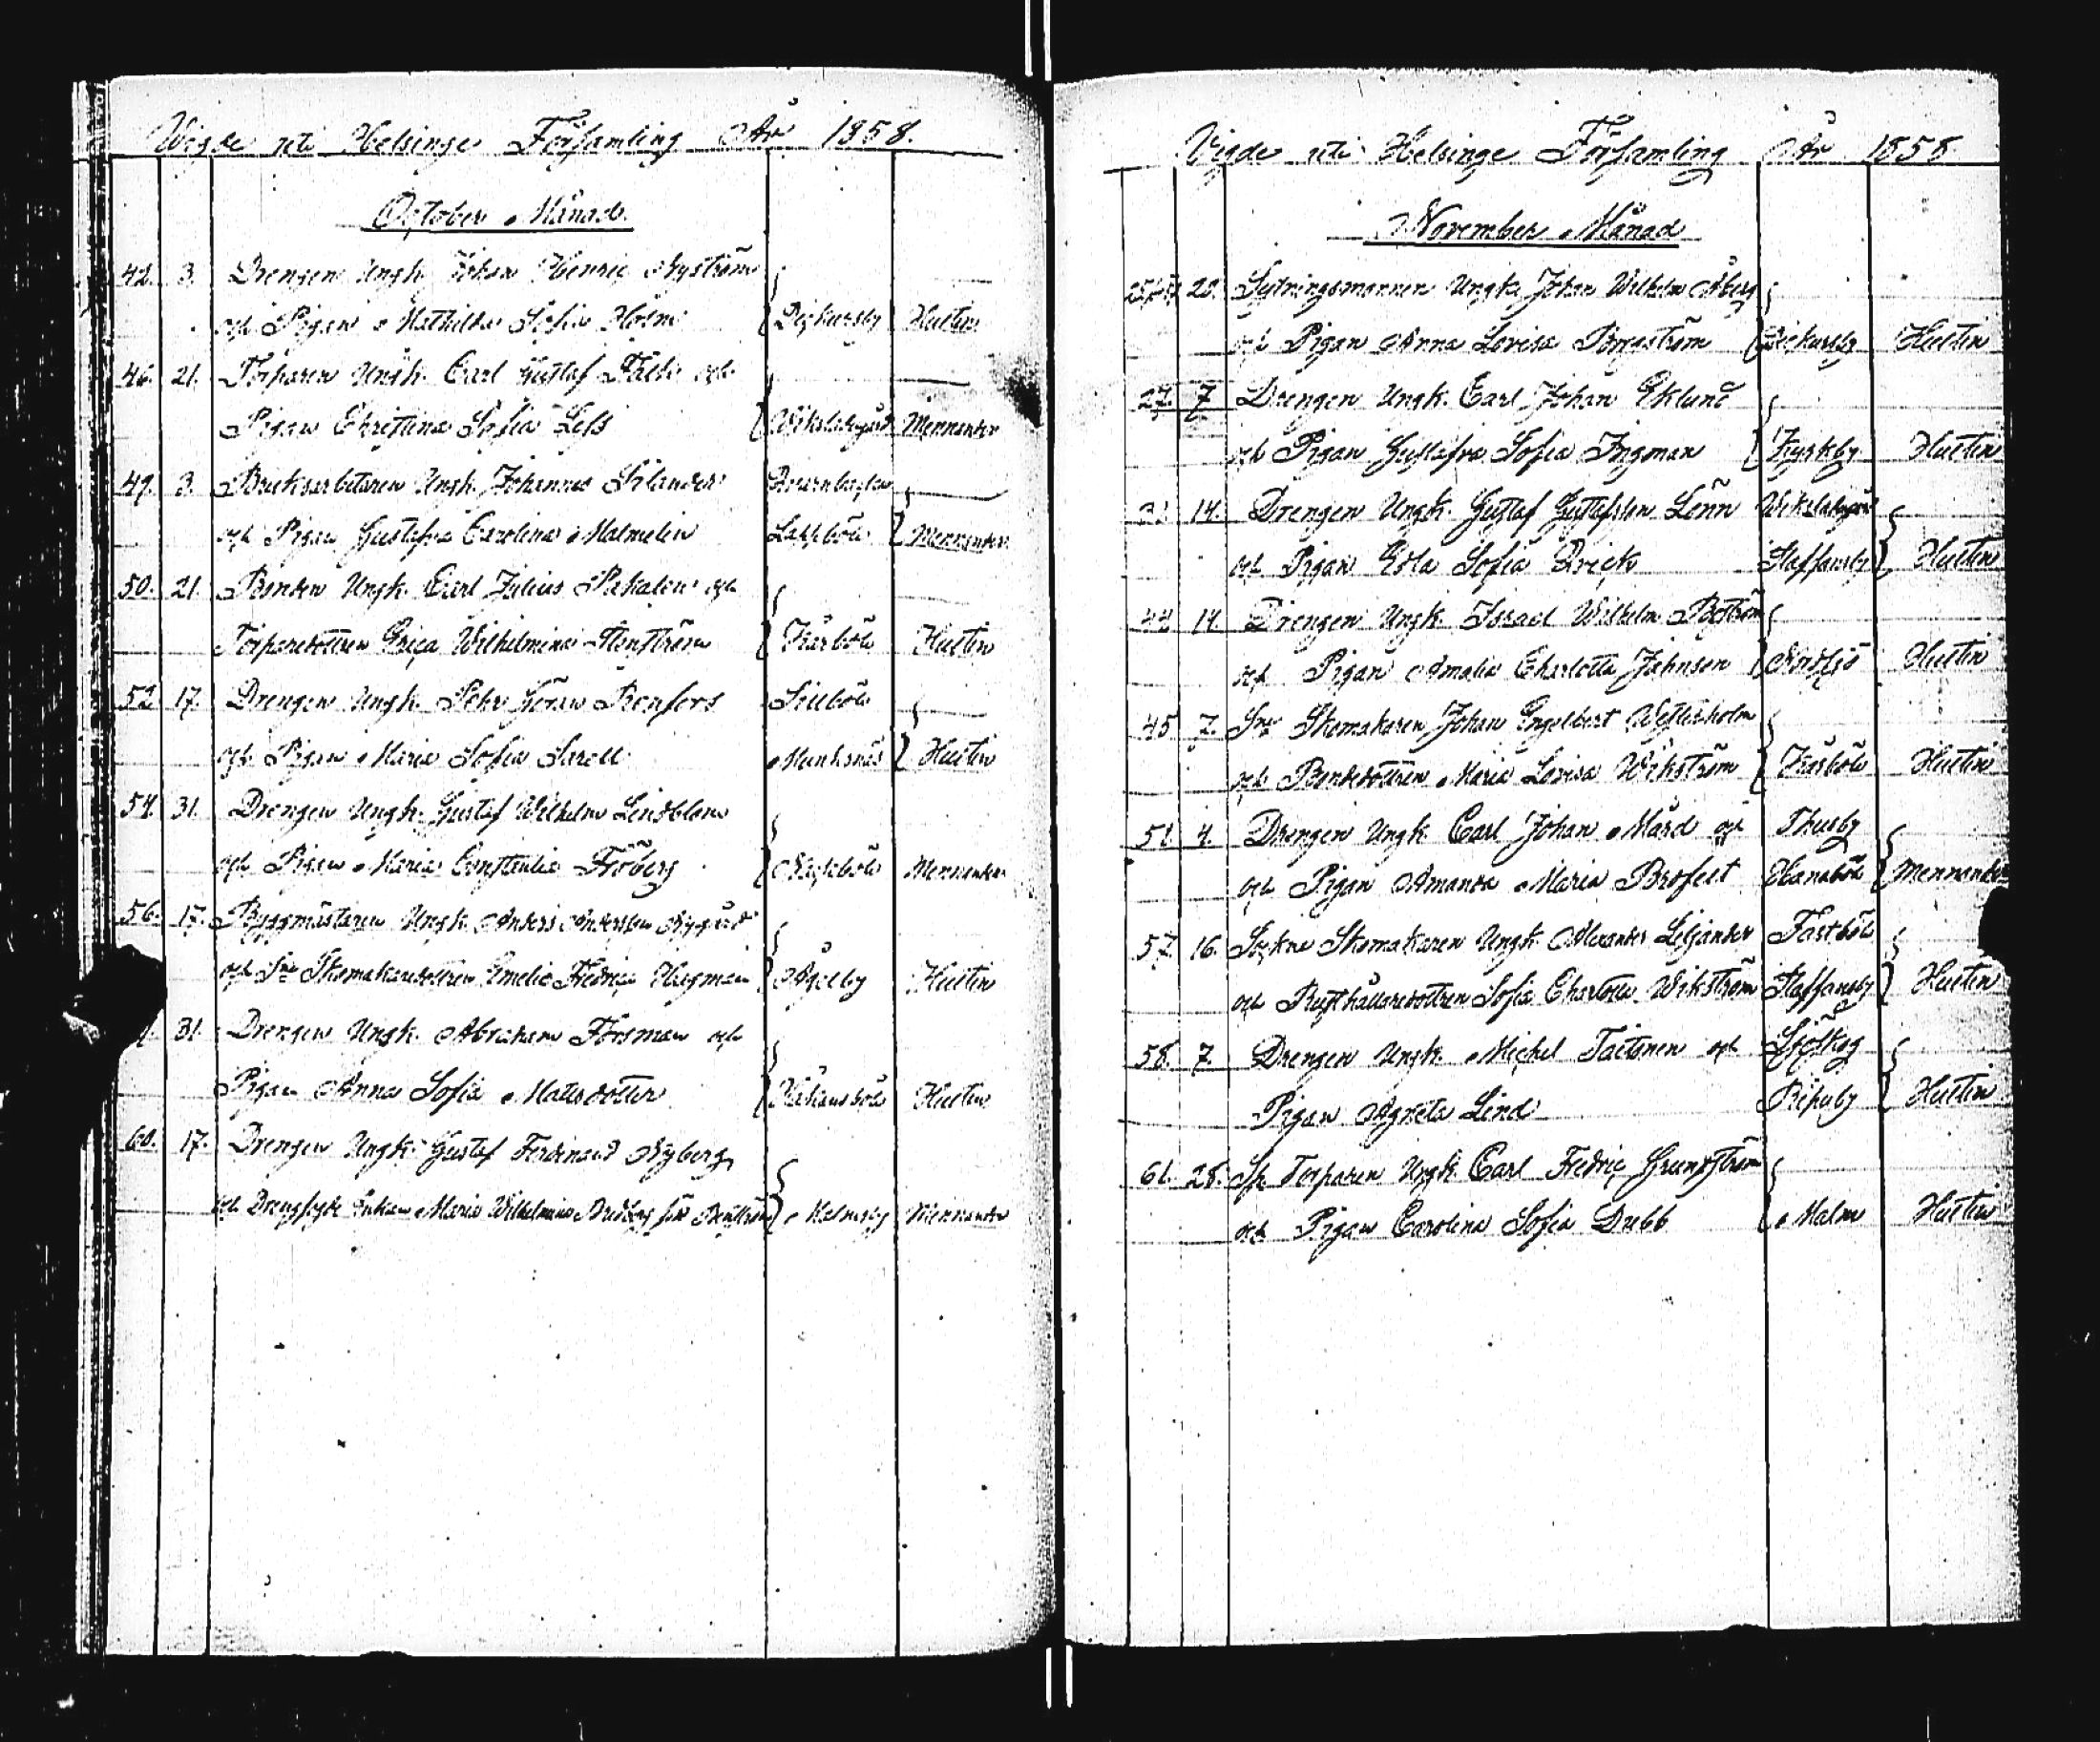 Wigde uti Helsinge Församling År 1858.
October Månad.
42. 3. Drengen Ungk. Johan Henric Nyström
och Pigan Mathilda Sofia Holm Dickursby Hultin
46. 21. Torparen Ungk. Carl Gustaf Fält och
Pigan Christina Sofia Less Wikslabergård Mennander
49. 3. Bruksarbetaren Ungk. Johannes Selander
och Pigan Gustafva Carolina Malmelin Lappböle Mennander
50. 21. Bonden Ungk. Carl Julius och
Torparedottren Erica Wilhelmina Stenström Kårböle Hultin
52 17. Drengen Ungk. Pehr Göran Renfors Sillböle
och Pigan Maria Sofia Sarell Munksnäs Hultin
54. 31. Drengen Ungk. Gustaf Wilhelm Lindblom
och Pigan Maria Constantia Fröberg Nackböle Mennander
56. 17. Byggmästaren Ungk. Anders Andersson Nygård
och Sne Skomakaredottren Emelie Fredrica Hagman Åggelby Hultin
31. Drengen Ungk. Abraham Forsman och
Pigan Anna Sofia Matsdotter Håkansböle Hultin
60. 17. Drengen Ungk. Gustaf Ferdinand Nyberg
och Drengfogde Enkan Maria Wilhelmina född Malmsby Mennander
Vigde uti Helsinge Församling År 1858
November Månad
28. Sytningsmannen Ungk. Johan Wilhelm Åberg
och Pigan Anna Lovisa Borgström Dickursby Hultin
27. 7 Drengen Ungk. Carl Johan Eklund
och Pigan Gustafva Sofia Ingman Kyrkby Hultin
14. Drengen Ungk. Gustaf Gustafsson Lönn Wikslabergård
och Pigan Edla Sofia Staffansby Hultin
44 14. Drengen Ungk. Israel Wilhelm Boström
och Pigan Amalia Charlotta Jahnsen Nordsjö Hultin
45 7. Sne Skomakaren Johan Engelbert Westerholm
och Bondedottren Maria Lovisa Wikström Kårböle Hultin
51. 4. Drengen Ungk. Carl Johan Mård och Thusby
och Pigan Amanda Maria Brofelt Hanaböle Mennander
57. 16. Sockne Skomakaren Ungk. Alexander Liljander Fastböle
och Rusthållaredottren Sofia Charlotta Wikström Staffansby Hultin
58. 7. Drengen Ungk. Michel Taitonen och Sjöskog
Pigan Agneta Lind Ripuby Hultin
61. 28. Sp. Torparen Ungk. Carl Fredric Grundström
och Pigan Carolina Sofia Dubb Malm Hultin